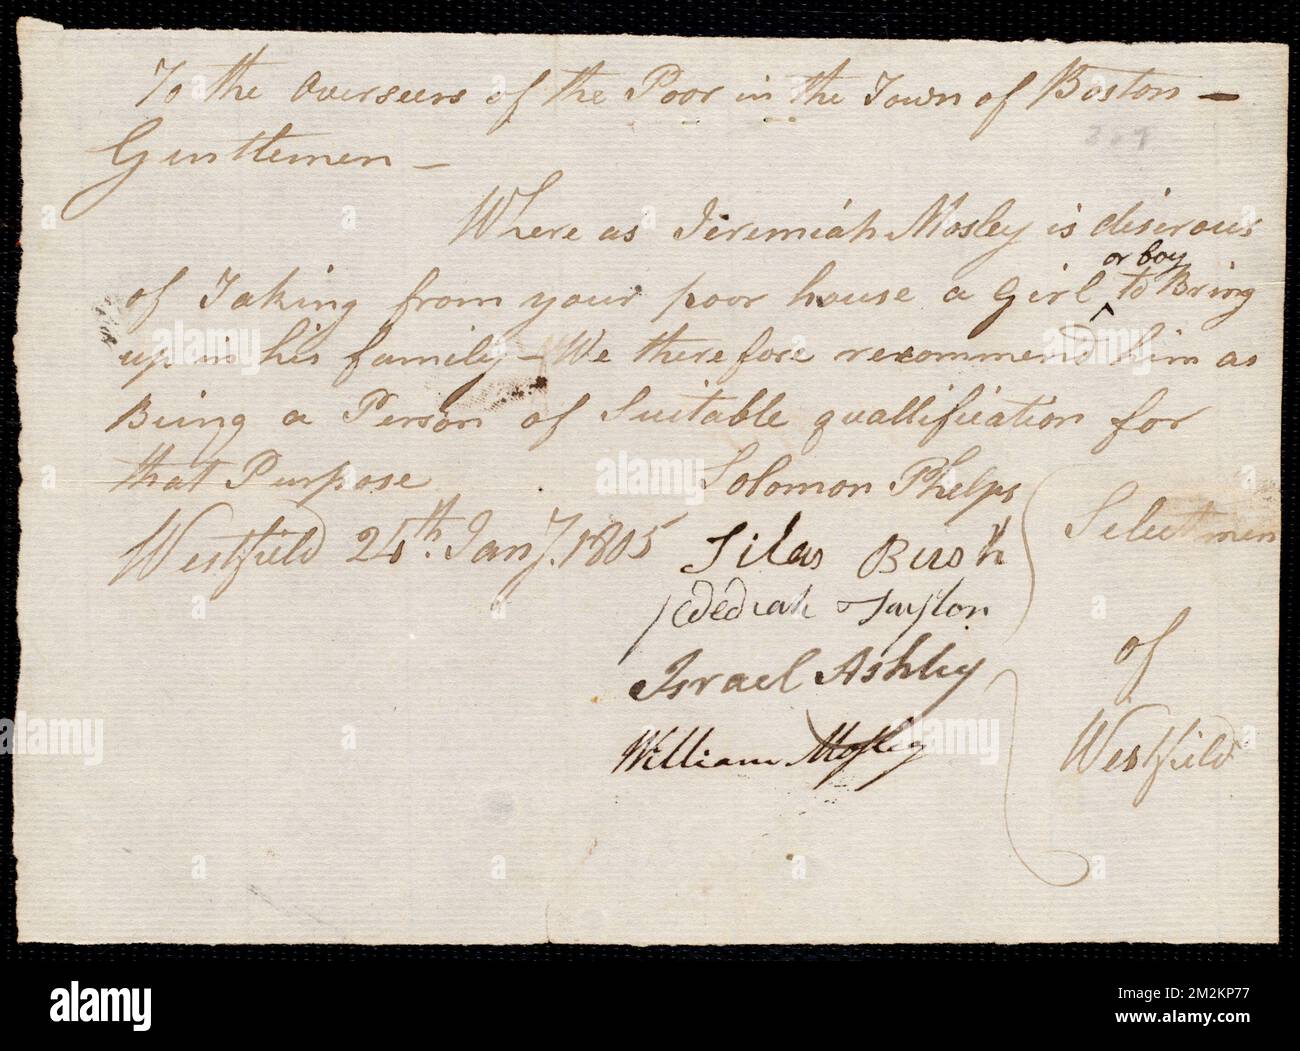 To the Overseers of the Poor in the Town of Boston —
Gentlemen —
Where as Jeremiah Mosley is disirous
or boy
of Taking from your poor house a Girl ^ to Bring
up in his family — We therefore recommend him as
Being a Person of Suitable quallification for
that Purpose
Westfield 25th Jany. 1805
Solomon Phelps
Silas Bush
Jedediah Taylor
Israel Ashley
William Mosley
Selectmen
of
Westfield
alamy
alamy
alamy
Image ID: 2M2KP77
www.alamy.com